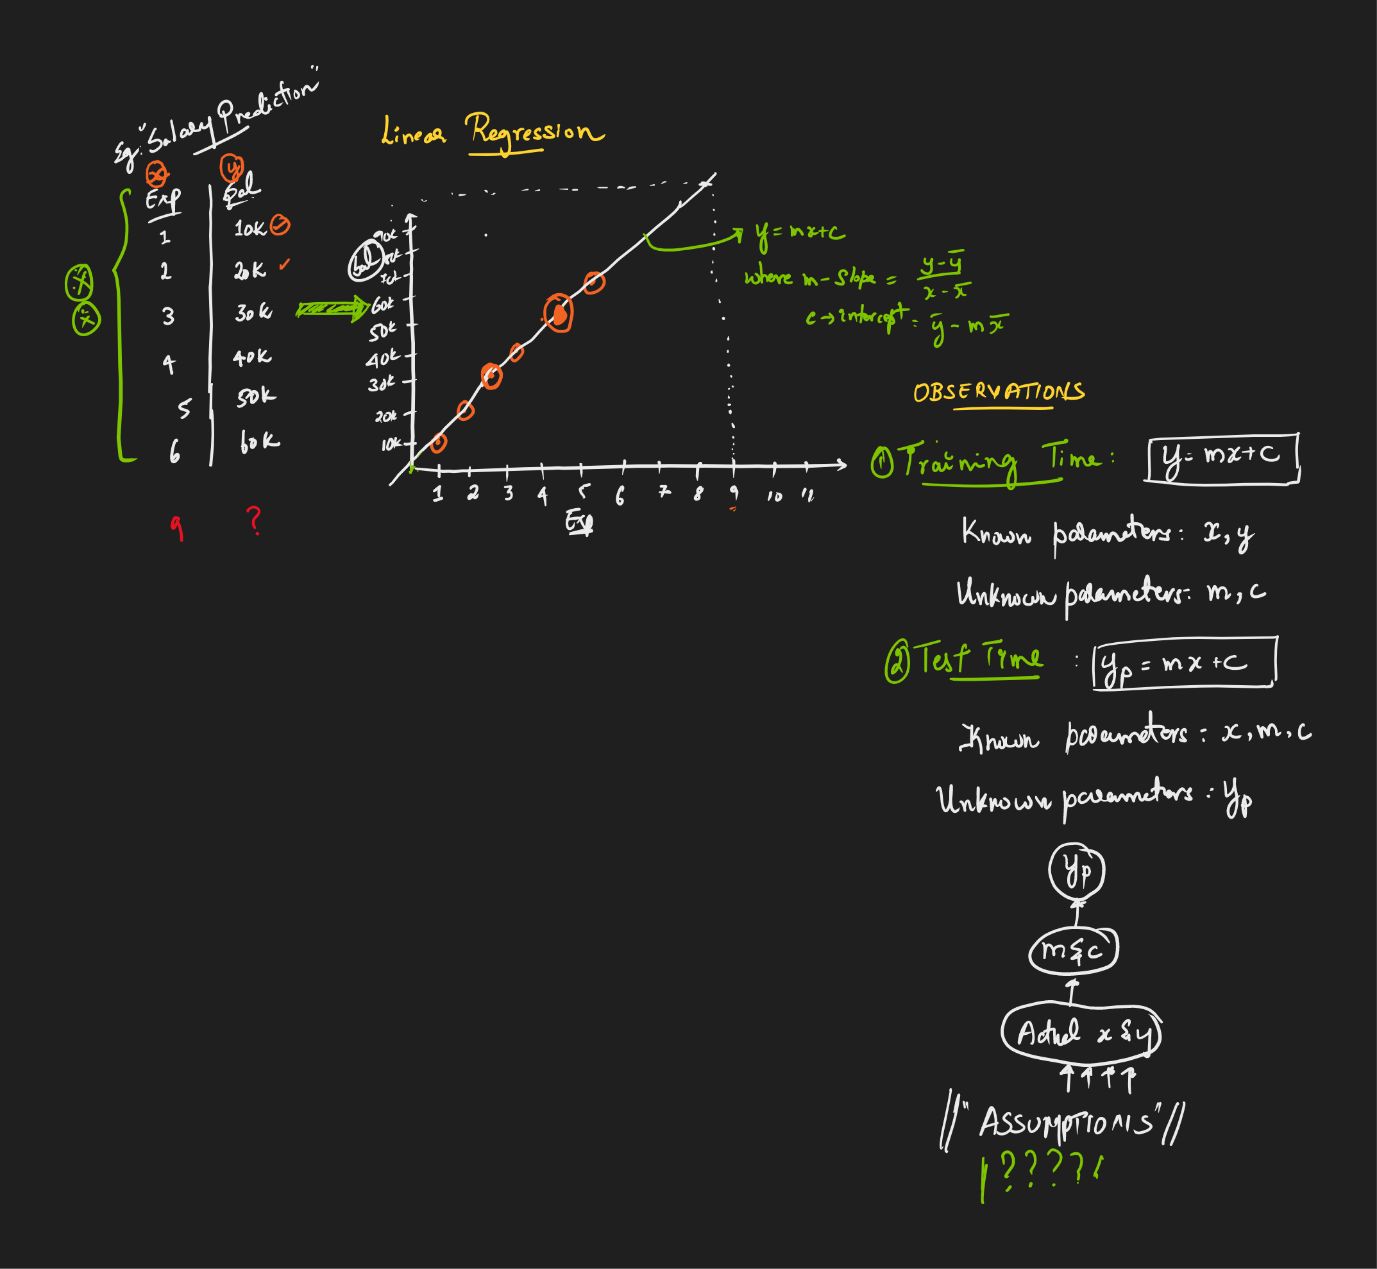 Eg: "Salary Prediction"
Linear Regression
x y
Exp Sal
1 10K
2 20K
3 30K
4 40K
5 50K
6 60K
9 ?
ȳ
x̄
Sal
90k
80k
70k
60k
50k
40k
30k
20k
10k
1 2 3 4 5 6 7 8 9 10 11
Exp
y = mx+c
where m - slope = y-ȳ / x-x̄
c → intercept = ȳ - m x̄
OBSERVATIONS
① Training Time: y = mx+c
Known parameters: x, y
Unknown parameters: m, c
② Test Time : yp = mx + c
Known parameters: x, m, c
Unknown parameters: yp
yp
m & c
Actual x & y
// "ASSUMPTIONS" //
????